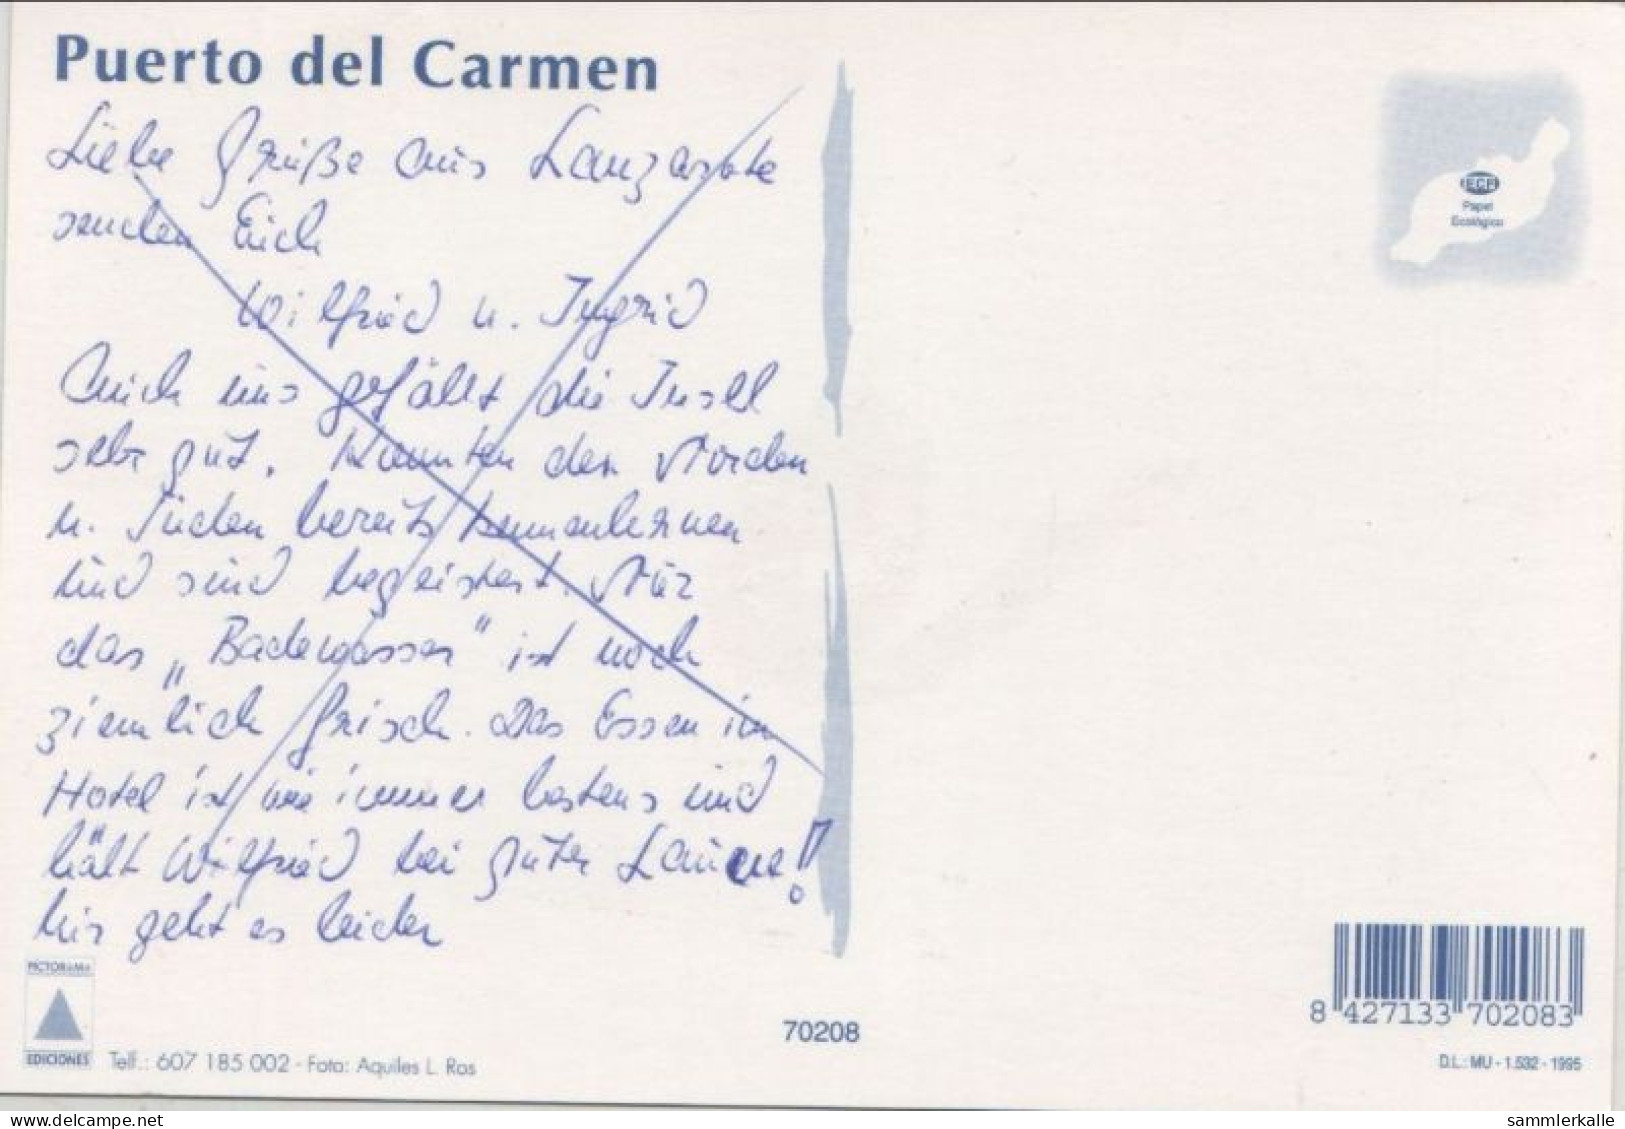 Puerto del Carmen
Liebe Grüße aus Lanzarote
senden Euch
Wilfried u. Ingrid
Auch uns gefällt die Insel
sehr gut. Konnten den Norden
u. Süden bereits kennenlernen
und sind begeistert. Nur
das „Badewasser" ist noch
ziemlich frisch. Das Essen im
Hotel ist wie immer bestens und
hält Wilfried bei guter Laune!
Mir geht es leider
ECF
Papel
Ecológico
PICTORAMA
EDICIONES
Telf.: 607 185 002 - Foto: Aquiles L. Ros
70208
8 427133 702083
D.L.: MU - 1.532 - 1995
delcampe.net
sammlerkalle